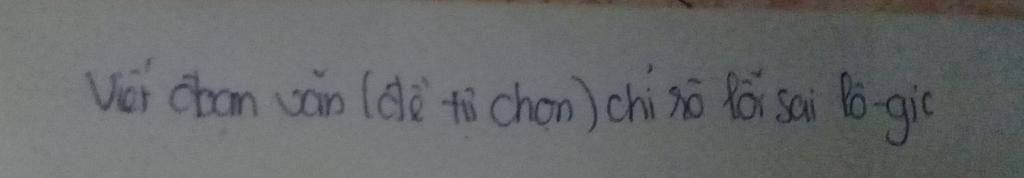 Viết đoạn văn (đề tự chọn) chỉ rõ lỗi sai lô-gic